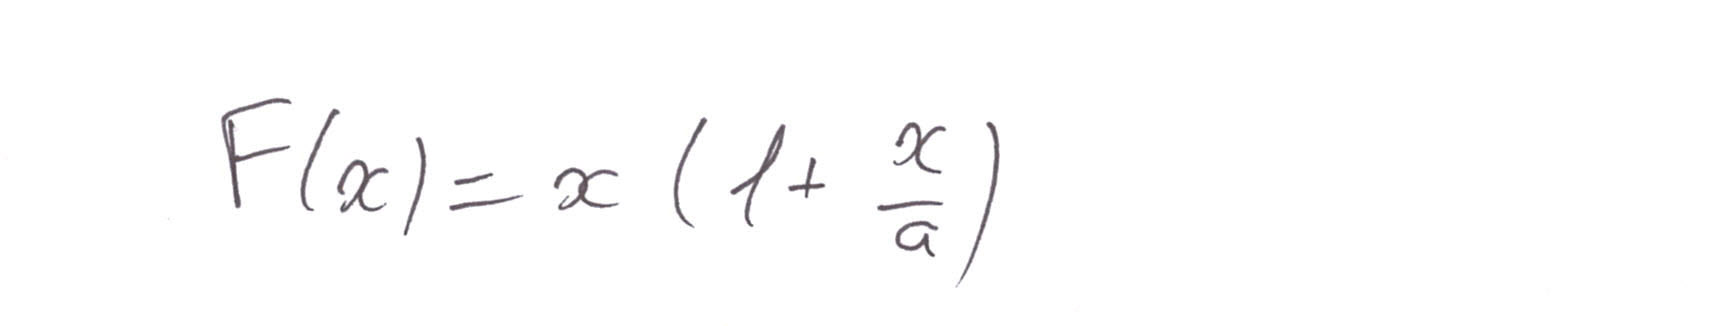 F(x) = x (1 + x/a)